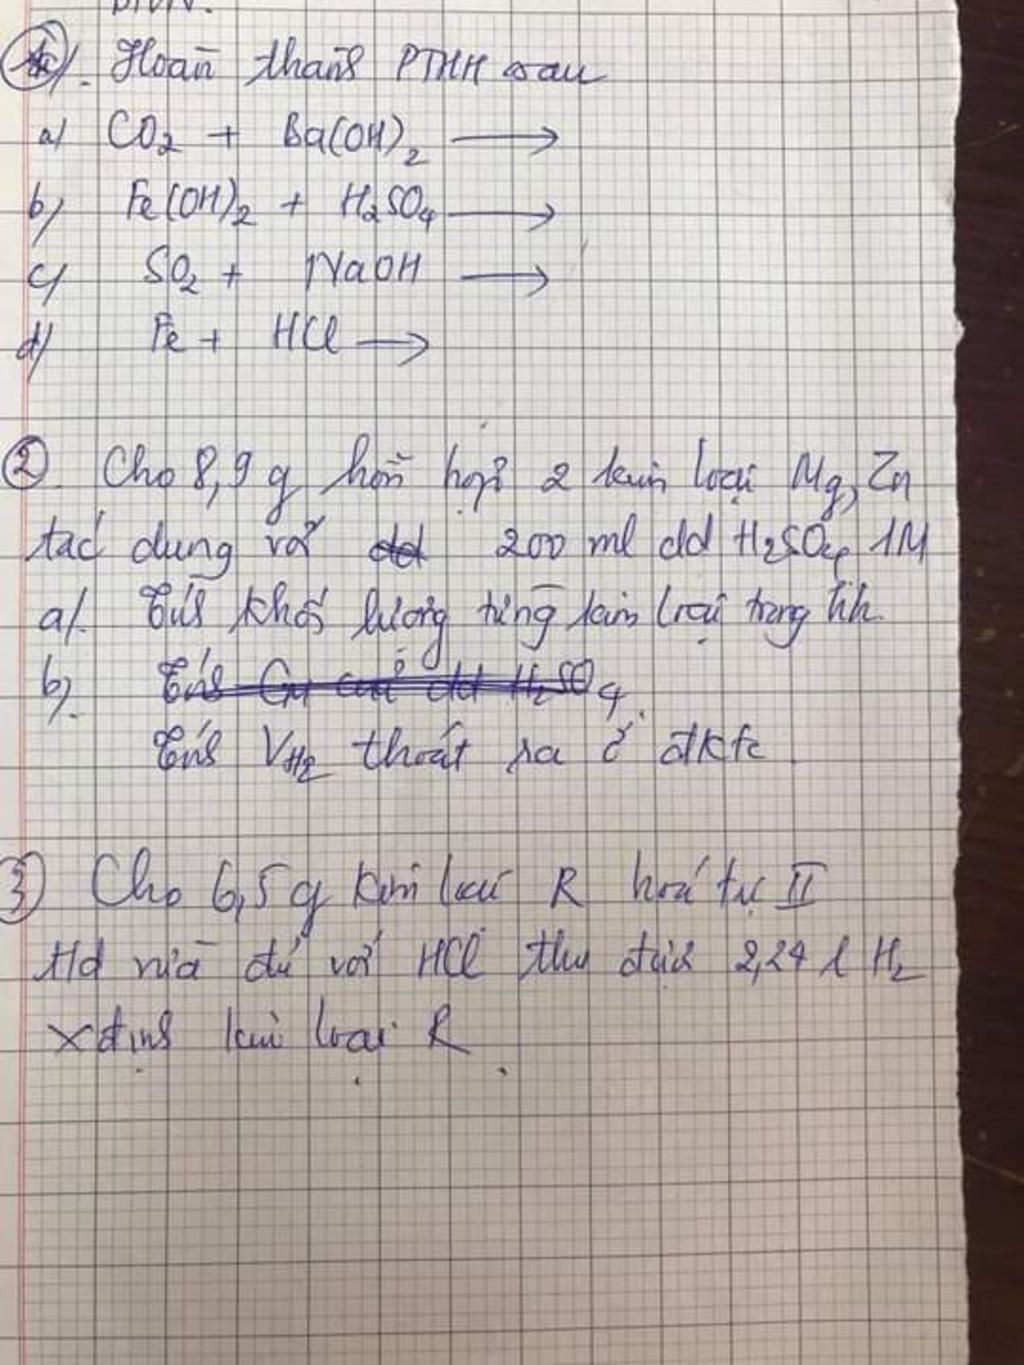 1/. Hoàn thành PTHH sau
a/ CO2 + Ba(OH)2 →
b/ Fe(OH)2 + H2SO4 →
c/ SO2 + NaOH →
d/ Fe + HCl →
2 Cho 8,9 g hỗn hợp 2 kim loại Mg, Zn
tác dụng với 200 ml dd H2SO4 1M
a/. Tính khối lượng từng kim loại trong hh.
b/. Tính CM của dd H2SO4.
Tính VH2 thoát ra ở đktc.
3 Cho 6,5 g kim loại R hoá trị II
t/d vừa đủ với HCl thu được 2,24 l H2
xđịnh kim loại R